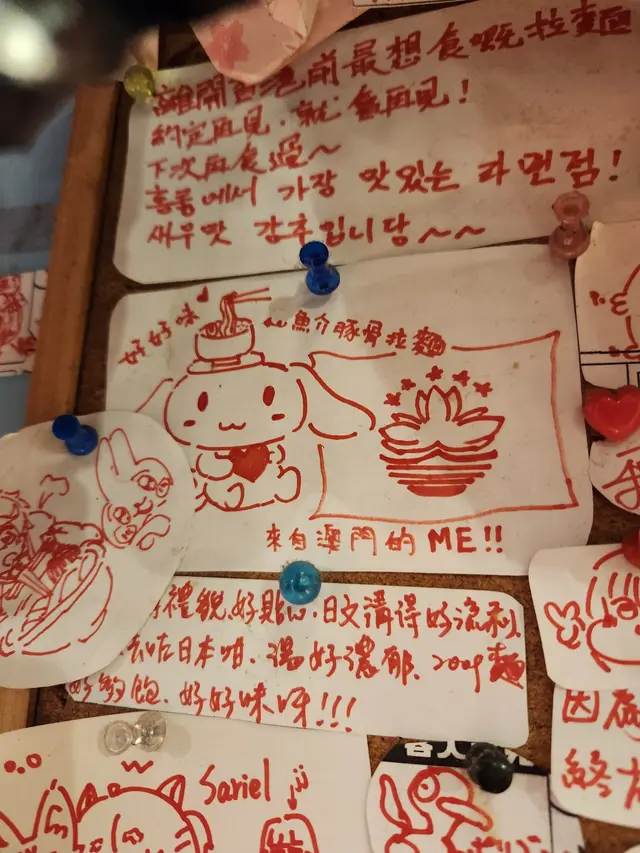 離開香港前最想食嘅拉麵
約定再見,就會再見!
下次再食過~
홍콩에서 가장 맛있는 라면점!
새우맛 강추입니당~~
好好好味
魚介豚骨拉麵
來自澳門的ME!!
禮貌,好貼心,日文講得好流利
去咗日本咁、湯好濃郁、200g麵
好夠飽、好好味呀!!!
Sariel
因為
終於